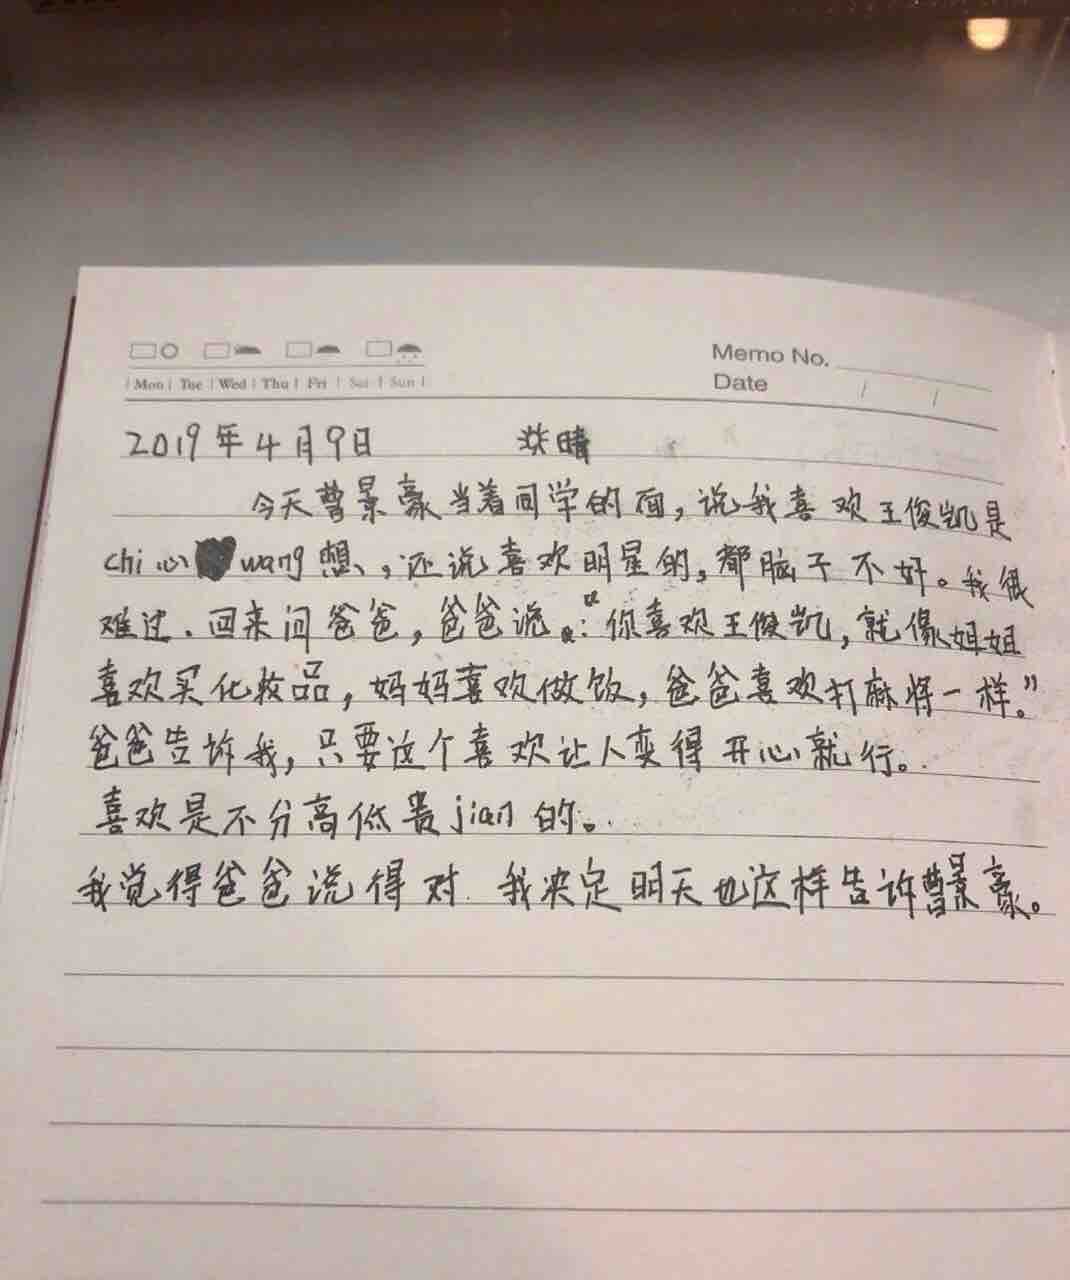 Memo No.
Mon Tue Wed Thu Fri Sat Sun
Date / /
2019年4月9日 晴
今天曹景豪当着同学的面,说我喜欢王俊凯是
chi心 wang想,还说喜欢明星的,都脑子不好。我很
难过.回来问爸爸,爸爸说:“你喜欢王俊凯,就像姐姐
喜欢买化妆品,妈妈喜欢做饭,爸爸喜欢打麻将一样。”
爸爸告诉我,只要这个喜欢让人变得开心就行。
喜欢是不分高低贵jian的。
我觉得爸爸说得对.我决定明天也这样告诉曹景豪。